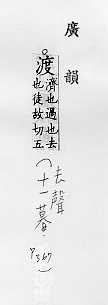 廣韻
渡
濟也過也去
也徒故切五
(去聲
十一暮.
P367)